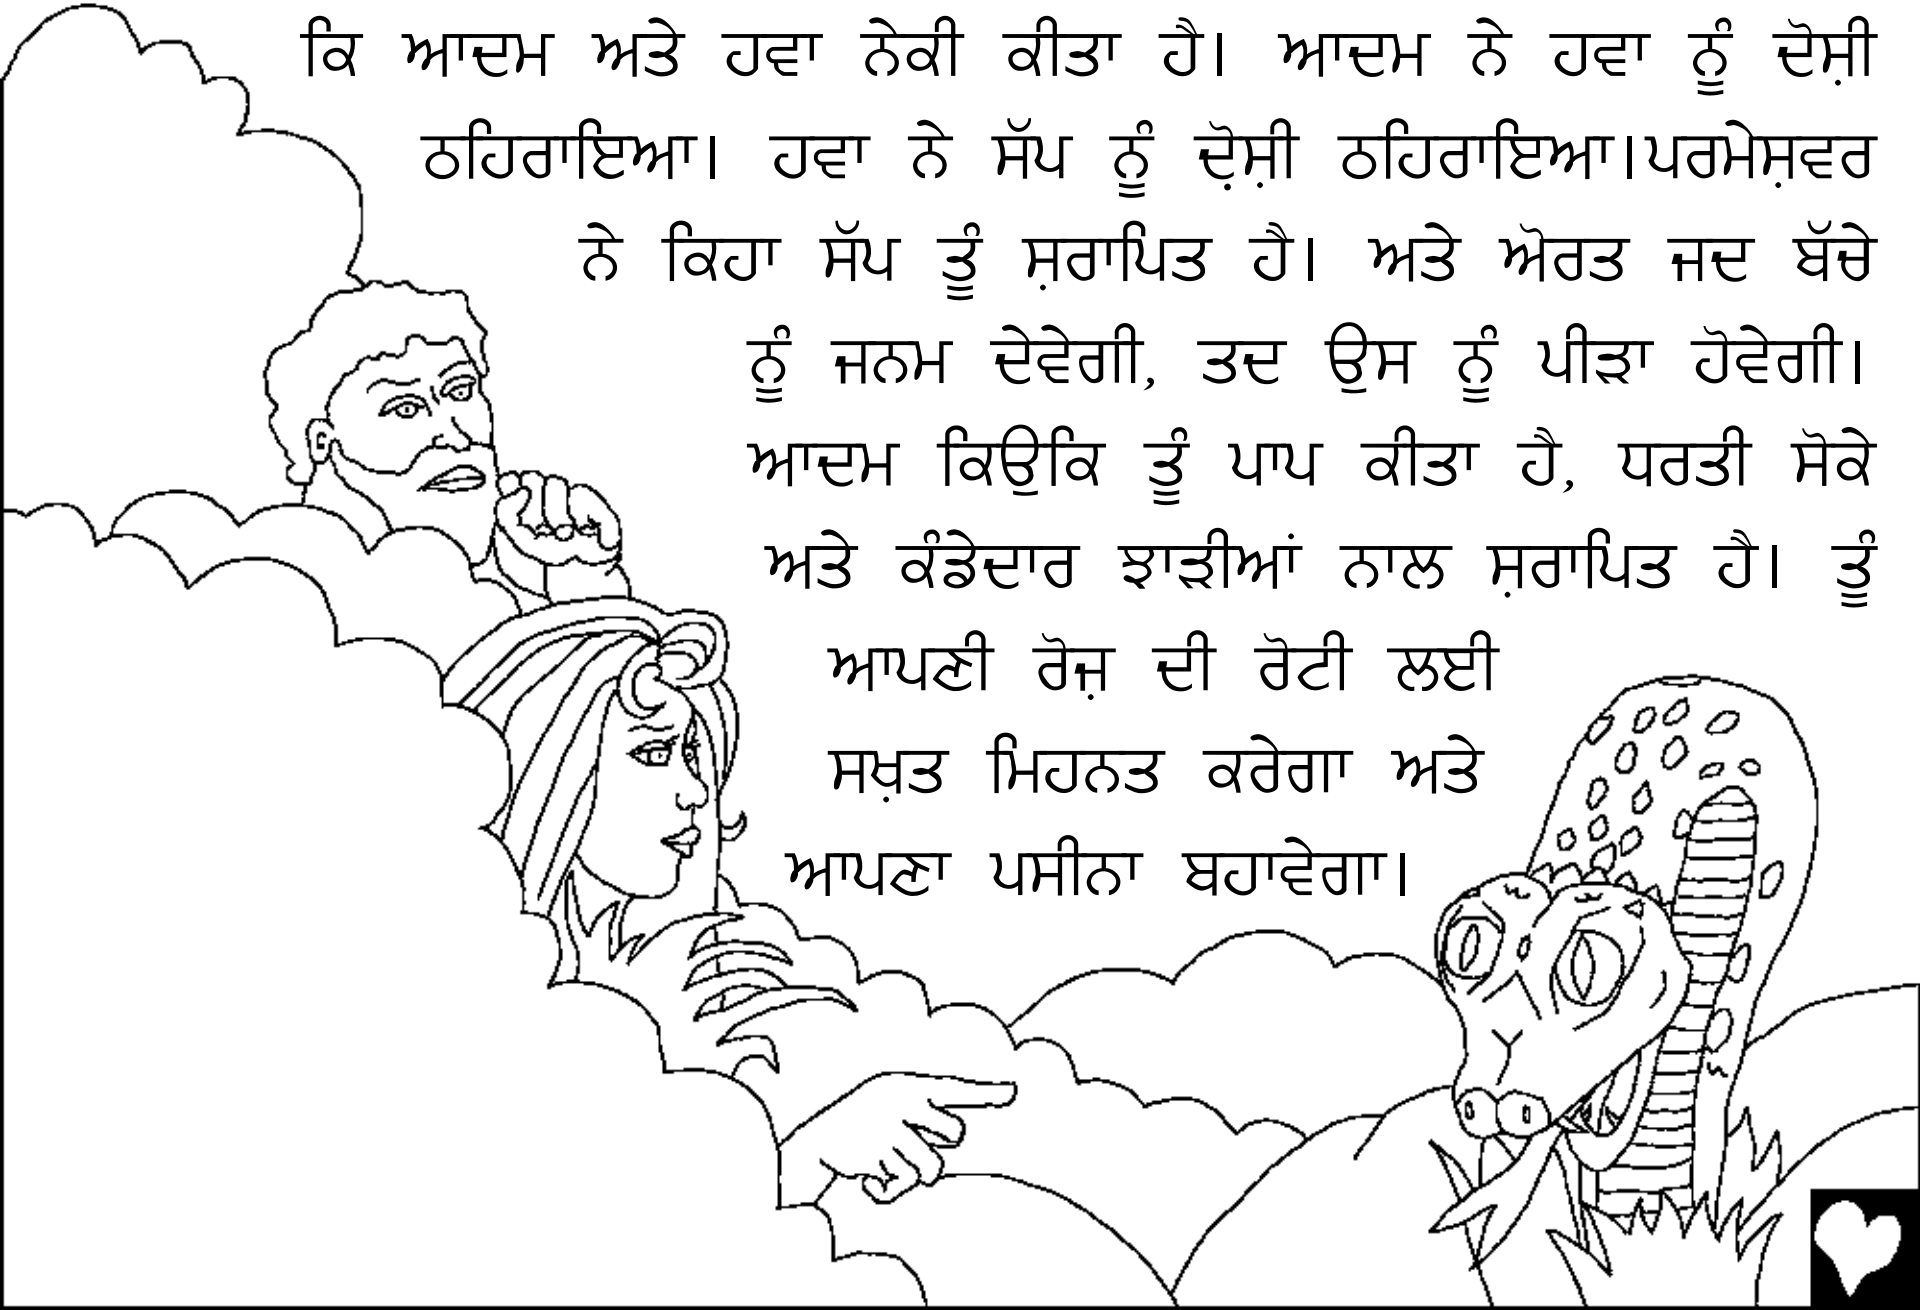 ਕਿ ਆਦਮ ਅਤੇ ਹਵਾ ਨੇਕੀ ਕੀਤਾ ਹੈ। ਆਦਮ ਨੇ ਹਵਾ ਨੂੰ ਦੋਸ਼ੀ
ਠਹਿਰਾਇਆ। ਹਵਾ ਨੇ ਸੱਪ ਨੂੰ ਦ਼ੋਸ਼ੀ ਠਹਿਰਾਇਆ।ਪਰਮੇਸ਼ਵਰ
ਨੇ ਕਿਹਾ ਸੱਪ ਤੂੰ ਸ਼ਰਾਪਿਤ ਹੈ। ਅਤੇ ਅੋਰਤ ਜਦ ਬੱਚੇ
ਨੂੰ ਜਨਮ ਦੇਵੇਗੀ, ਤਦ ਉਸ ਨੂੰ ਪੀੜਾ ਹੋਵੇਗੀ।
ਆਦਮ ਕਿਉਕਿ ਤੂੰ ਪਾਪ ਕੀਤਾ ਹੈ, ਧਰਤੀ ਸੋਕੇ
ਅਤੇ ਕੰਡੇਦਾਰ ਝਾੜੀਆਂ ਨਾਲ ਸ਼ਰਾਪਿਤ ਹੈ। ਤੂੰ
ਆਪਣੀ ਰੋਜ਼ ਦੀ ਰੋਟੀ ਲਈ
ਸਖ਼ਤ ਮਿਹਨਤ ਕਰੇਗਾ ਅਤੇ
ਆਪਣਾ ਪਸੀਨਾ ਬਹਾਵੇਗਾ।